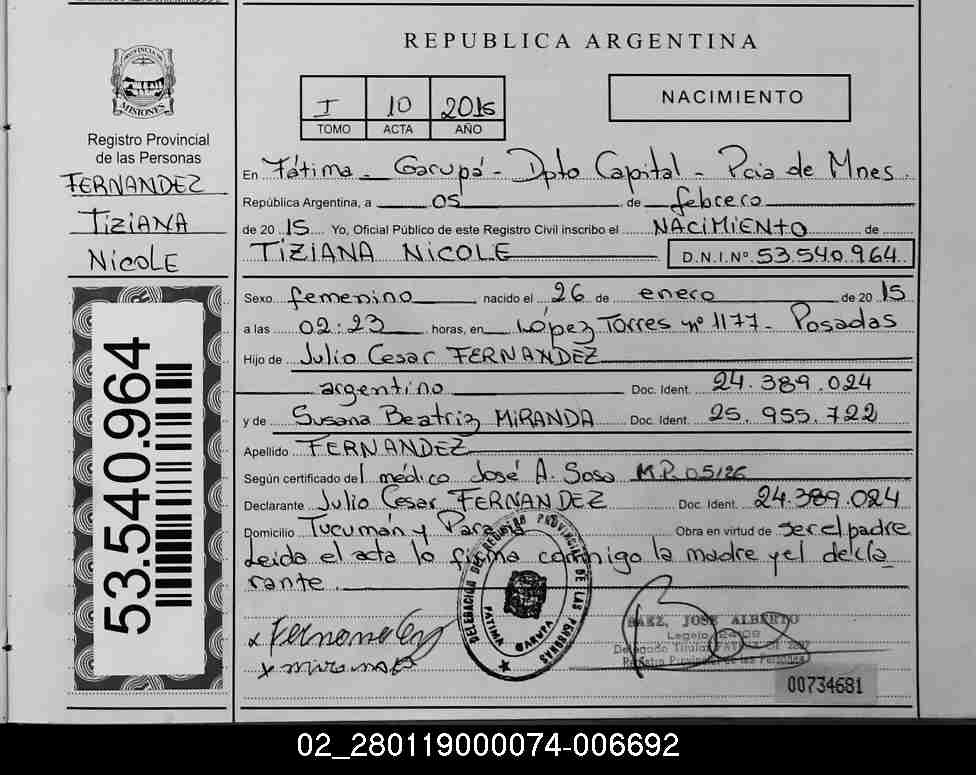 REPUBLICA ARGENTINA
PROVINCIA DE
MISIONES
Registro Provincial
de las Personas
FERNANDEZ
TIZIANA
NICOLE
53.540.964
I 10 2015
TOMO ACTA AÑO
NACIMIENTO
En Fátima - Garupá - Dpto Capital - Pcia de Mnes.
República Argentina, a 05 de febrero
de 2015 Yo, Oficial Público de este Registro Civil inscribo el NACIMIENTO de
TIZIANA NICOLE D.N.I.Nº 53.540.964
Sexo femenino nacido el 26 de enero de 2015
a las 02:23 horas, en López Torres nº 1177 - Posadas
Hijo de Julio Cesar FERNANDEZ
argentino Doc. Ident. 24.389.024
y de Susana Beatriz MIRANDA Doc. Ident. 25.955.722
Apellido FERNANDEZ
Según certificado del médico José A. Sosa M.P. 05126
Declarante Julio Cesar FERNANDEZ Doc. Ident. 24.389.024
Domicilio Tucumán y Paraná Obra en virtud de ser el padre
Leida el acta lo firma conmigo la madre y el decla
rante
DELEGACIÓN DEL REGISTRO PROVINCIAL DE LAS PERSONAS
FATIMA GARUPA
x Fernandez
x miranda
BAEZ, JOSE ALBERTO
Delegado Titular
Registro Provincial de las Personas
00734681
02_280119000074-006692